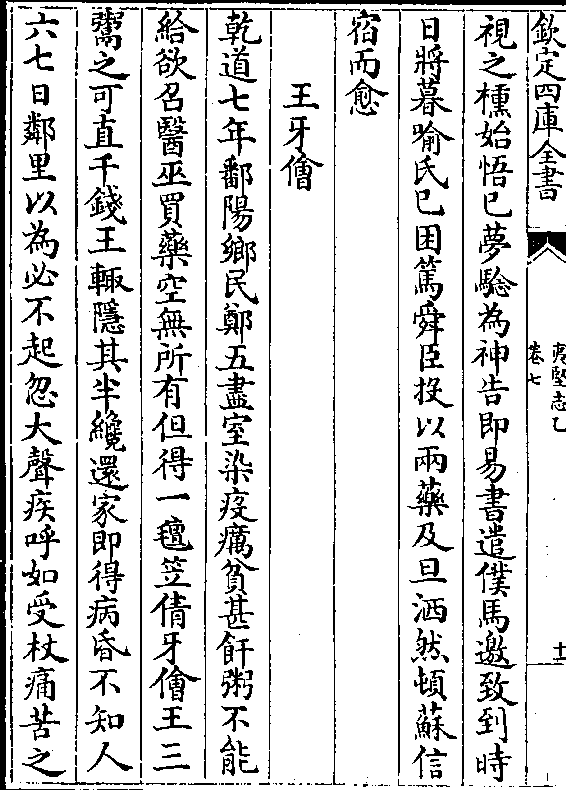 欽定四庫全書
夷堅志乙
卷七
十一
視之櫄始悟已夢驗為神告即易書遣僕馬邀致到時
日將暮喻氏已困篤舜臣投以兩藥及旦洒然頓蘇信
宿而愈
王牙儈
乾道七年鄱陽鄉民鄭五盡室染疫癘貧甚飦粥不能
給欲召醫巫買藥空無所有但得一氊笠倩牙儈王三
鬻之可直千錢王輙隱其半纔還家即得病昏不知人
六七日鄰里以為必不起忽大聲疾呼如受杖痛苦之